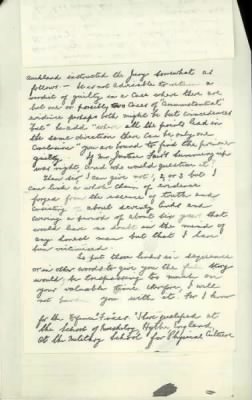 Auckland instructed the Jury somewhat as
follows – It is not advisable to return a
verdict of guilty in a case where there are
but one or possibly two cases of Circumstantial
evidence perhaps both might be but coincidences
but he adds "when all the points lead in
the same direction there can be only one
Conclusion" you are bound to find the prisoner
guilty. If Mr Justice summing up
was right, and who would question it,
Then Sir I can give not 1, 2, or 3 but I
can link a whole chain of evidence
forged from the essence of truth and
about seventy links and
covering a period of about six years that
would leave no doubt in the mind of
any honest man but that I have
been victimised.
To put these links in sequence
or in other words to give you the full story
would be to much on
your valuable time therefore, I will
not you with it. For I know
for the I have qualified at
the School of Musketry, Hythe England,
At the Military School for Physical Culture